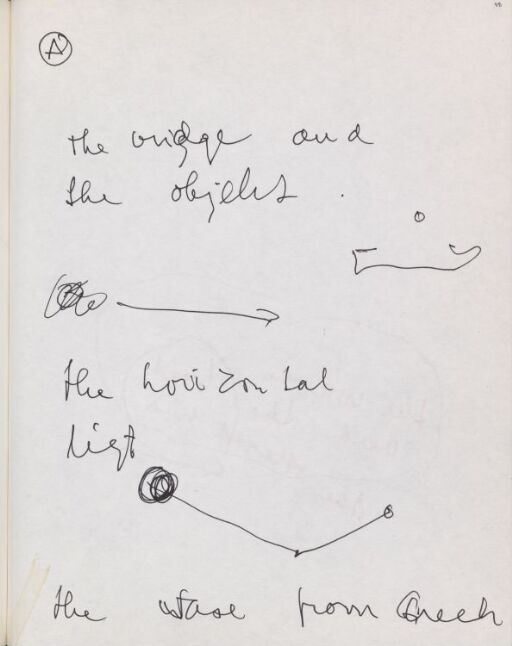 A
the bridge and
the objekts.
the horizontal
ligt
the vase from Greek